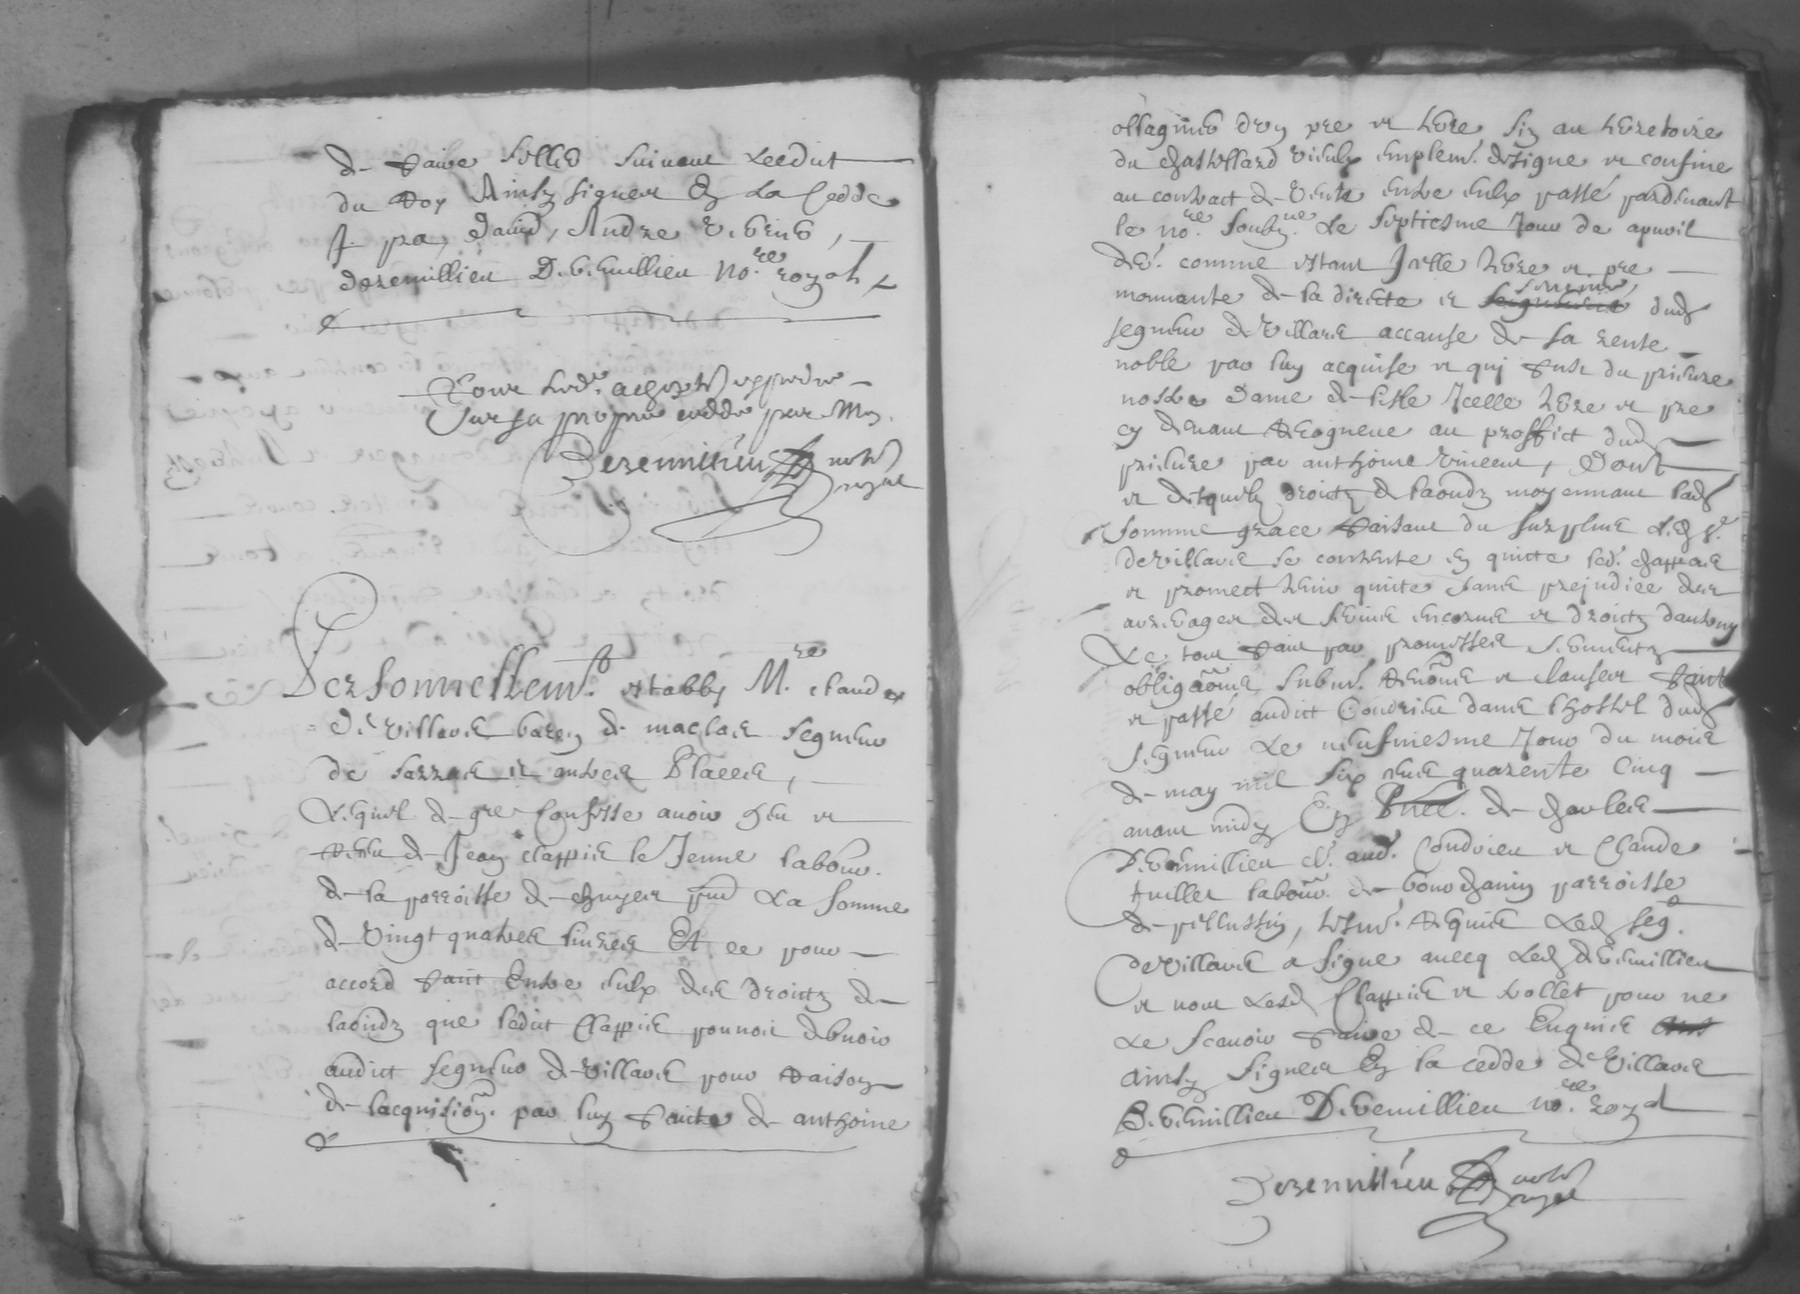 de faire seller suivant ledict
du Roy Ainsy signes En la Cedde
J. pra, David, Andre
Deremillieu D. Remillieu no.re royal
Pour led.
sur sa propre cedde par Moy
Deremillieu not.
royal
Personnellem.t estably M.re claude
de villars baron de maclas segneur
de sarras et autres Places,
Lequel de gre confesse avoir heu et
receu de Jean clappier le Jeune labour.
de la parroisse de chuyer pnt La somme
de vingt quatre livres Et ce pour
accord faict Entre eulx des droictz de
laoudz que ledict Clappier pouvoit debvoir
audict segneur de villars pour raison
de lacquisiõn par luy faicte de anthoine
d'un pre et terre siz au terretoire
du chastellard vieulx emplem.t designe et confine
au contract de vente entre eulx passé pardevant
le no.re soubz.ne Le septiesme Jour de apvril
der.r comme estant Icelle terre et pre
mouvante de la directe et dud
segneur de villars a cause de sa rente
noble par luy acquise et qui fust du prieure
nostre Dame de lisle Icelle terre et pre
cy devant recogneue au proffict dud
prieure par anthoine vincent, Dont
et desquelz droictz de laoudz moyennant lad
somme grace faisant du surplus led s.r
de villars se contente en quicte led. clappier
et promect tenir quitte sans prejudice des
arrerages des servis encorus et droictz daultruy
Le tout faict par promesses sermentz
obligãons submi. renõns et clauses faict
et passé audict Condrieu dans lhostel dud
segneur Le neufviesme Jour du mois
de may mil six cens quarente cinq
avant midy En pñce. de charles
Deremillieu cl. aud. Condrieu et Claude
labour. de parroisse
de pellussin, tesm. requis Led seg.r
de villars a signe avecq Led Deremillieu
et non Lesd Clappier et pour ne
Le scavoir faire de ce Enquis
ainsy signes En la cedde de villars
Deremillieu Deremillieu no.re royal
Deremillieu not.
royal